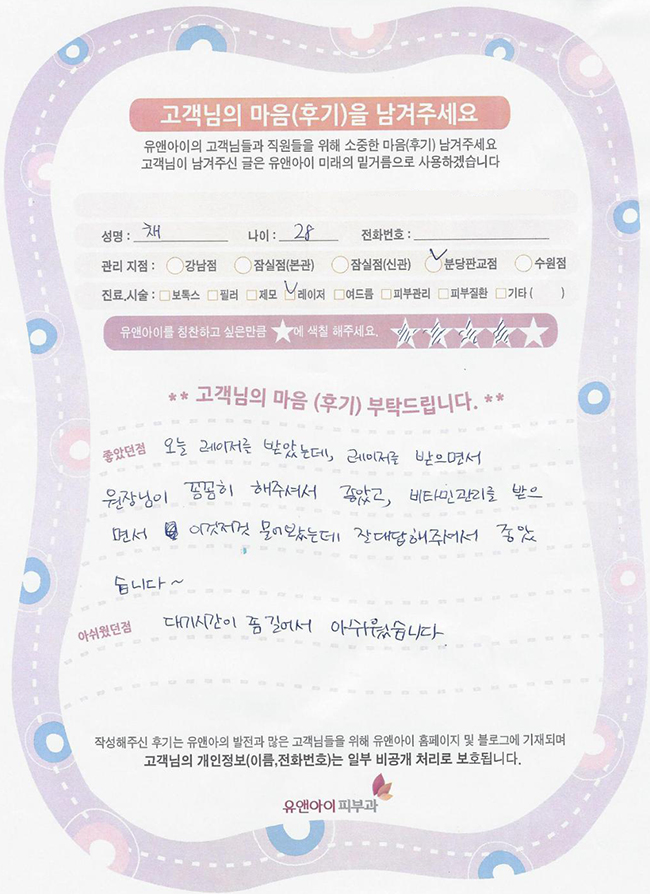 고객님의 마음(후기)을 남겨주세요
유앤아이의 고객님들과 직원들을 위해 소중한 마음(후기) 남겨주세요
고객님이 남겨주신 글은 유앤아이 미래의 밑거름으로 사용하겠습니다
성명 : 채 나이 : 28 전화번호 :
관리 지점 : 강남점 잠실점(본관) 잠실점(신관) 분당판교점 수원점
진료,시술 : 보톡스 필러 제모 레이저 여드름 피부관리 피부질환 기타 ( )
유앤아이를 칭찬하고 싶은만큼 ★에 색칠 해주세요.
** 고객님의 마음 (후기) 부탁드립니다. **
좋았던점 오늘 레이저를 받았는데, 레이저를 받으면서
원장님이 꼼꼼히 해주셔서 좋았고, 비타민관리를 받으
면서 이것저것 물어봤는데 잘대답해주셔서 좋았
습니다~
아쉬웠던점 대기시간이 좀 길어서 아쉬웠습니다
작성해주신 후기는 유앤아의 발전과 많은 고객님들을 위해 유앤아이 홈페이지 및 블로그에 기재되며
고객님의 개인정보(이름,전화번호)는 일부 비공개 처리로 보호됩니다.
유앤아이피부과